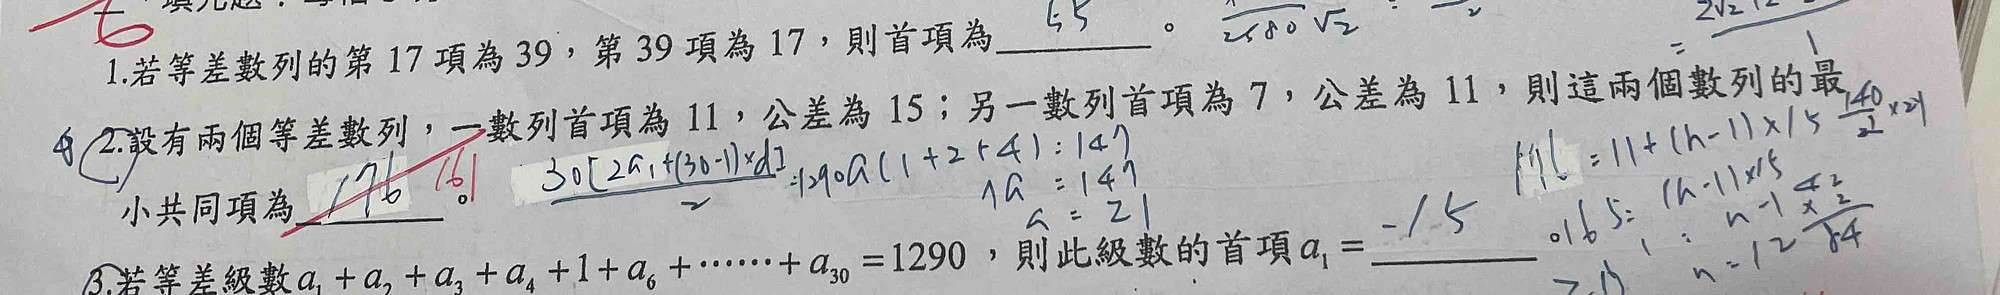 1.若等差數列的第 17 項為 39，第 39 項為 17，則首項為 55 。
2.設有兩個等差數列，一數列首項為 11，公差為 15；另一數列首項為 7，公差為 11，則這兩個數列的最
小共同項為 176 161 。
30[2a₁+(30-1)×d] / 2 =1290
a(1+2+4)=147
7a=147
a=21
176=11+(n-1)×15
165=(n-1)×15
n=12
3.若等差級數a₁+a₂+a₃+a₄+1+a₆+……+a₃₀=1290，則此級數的首項a₁= -15 。